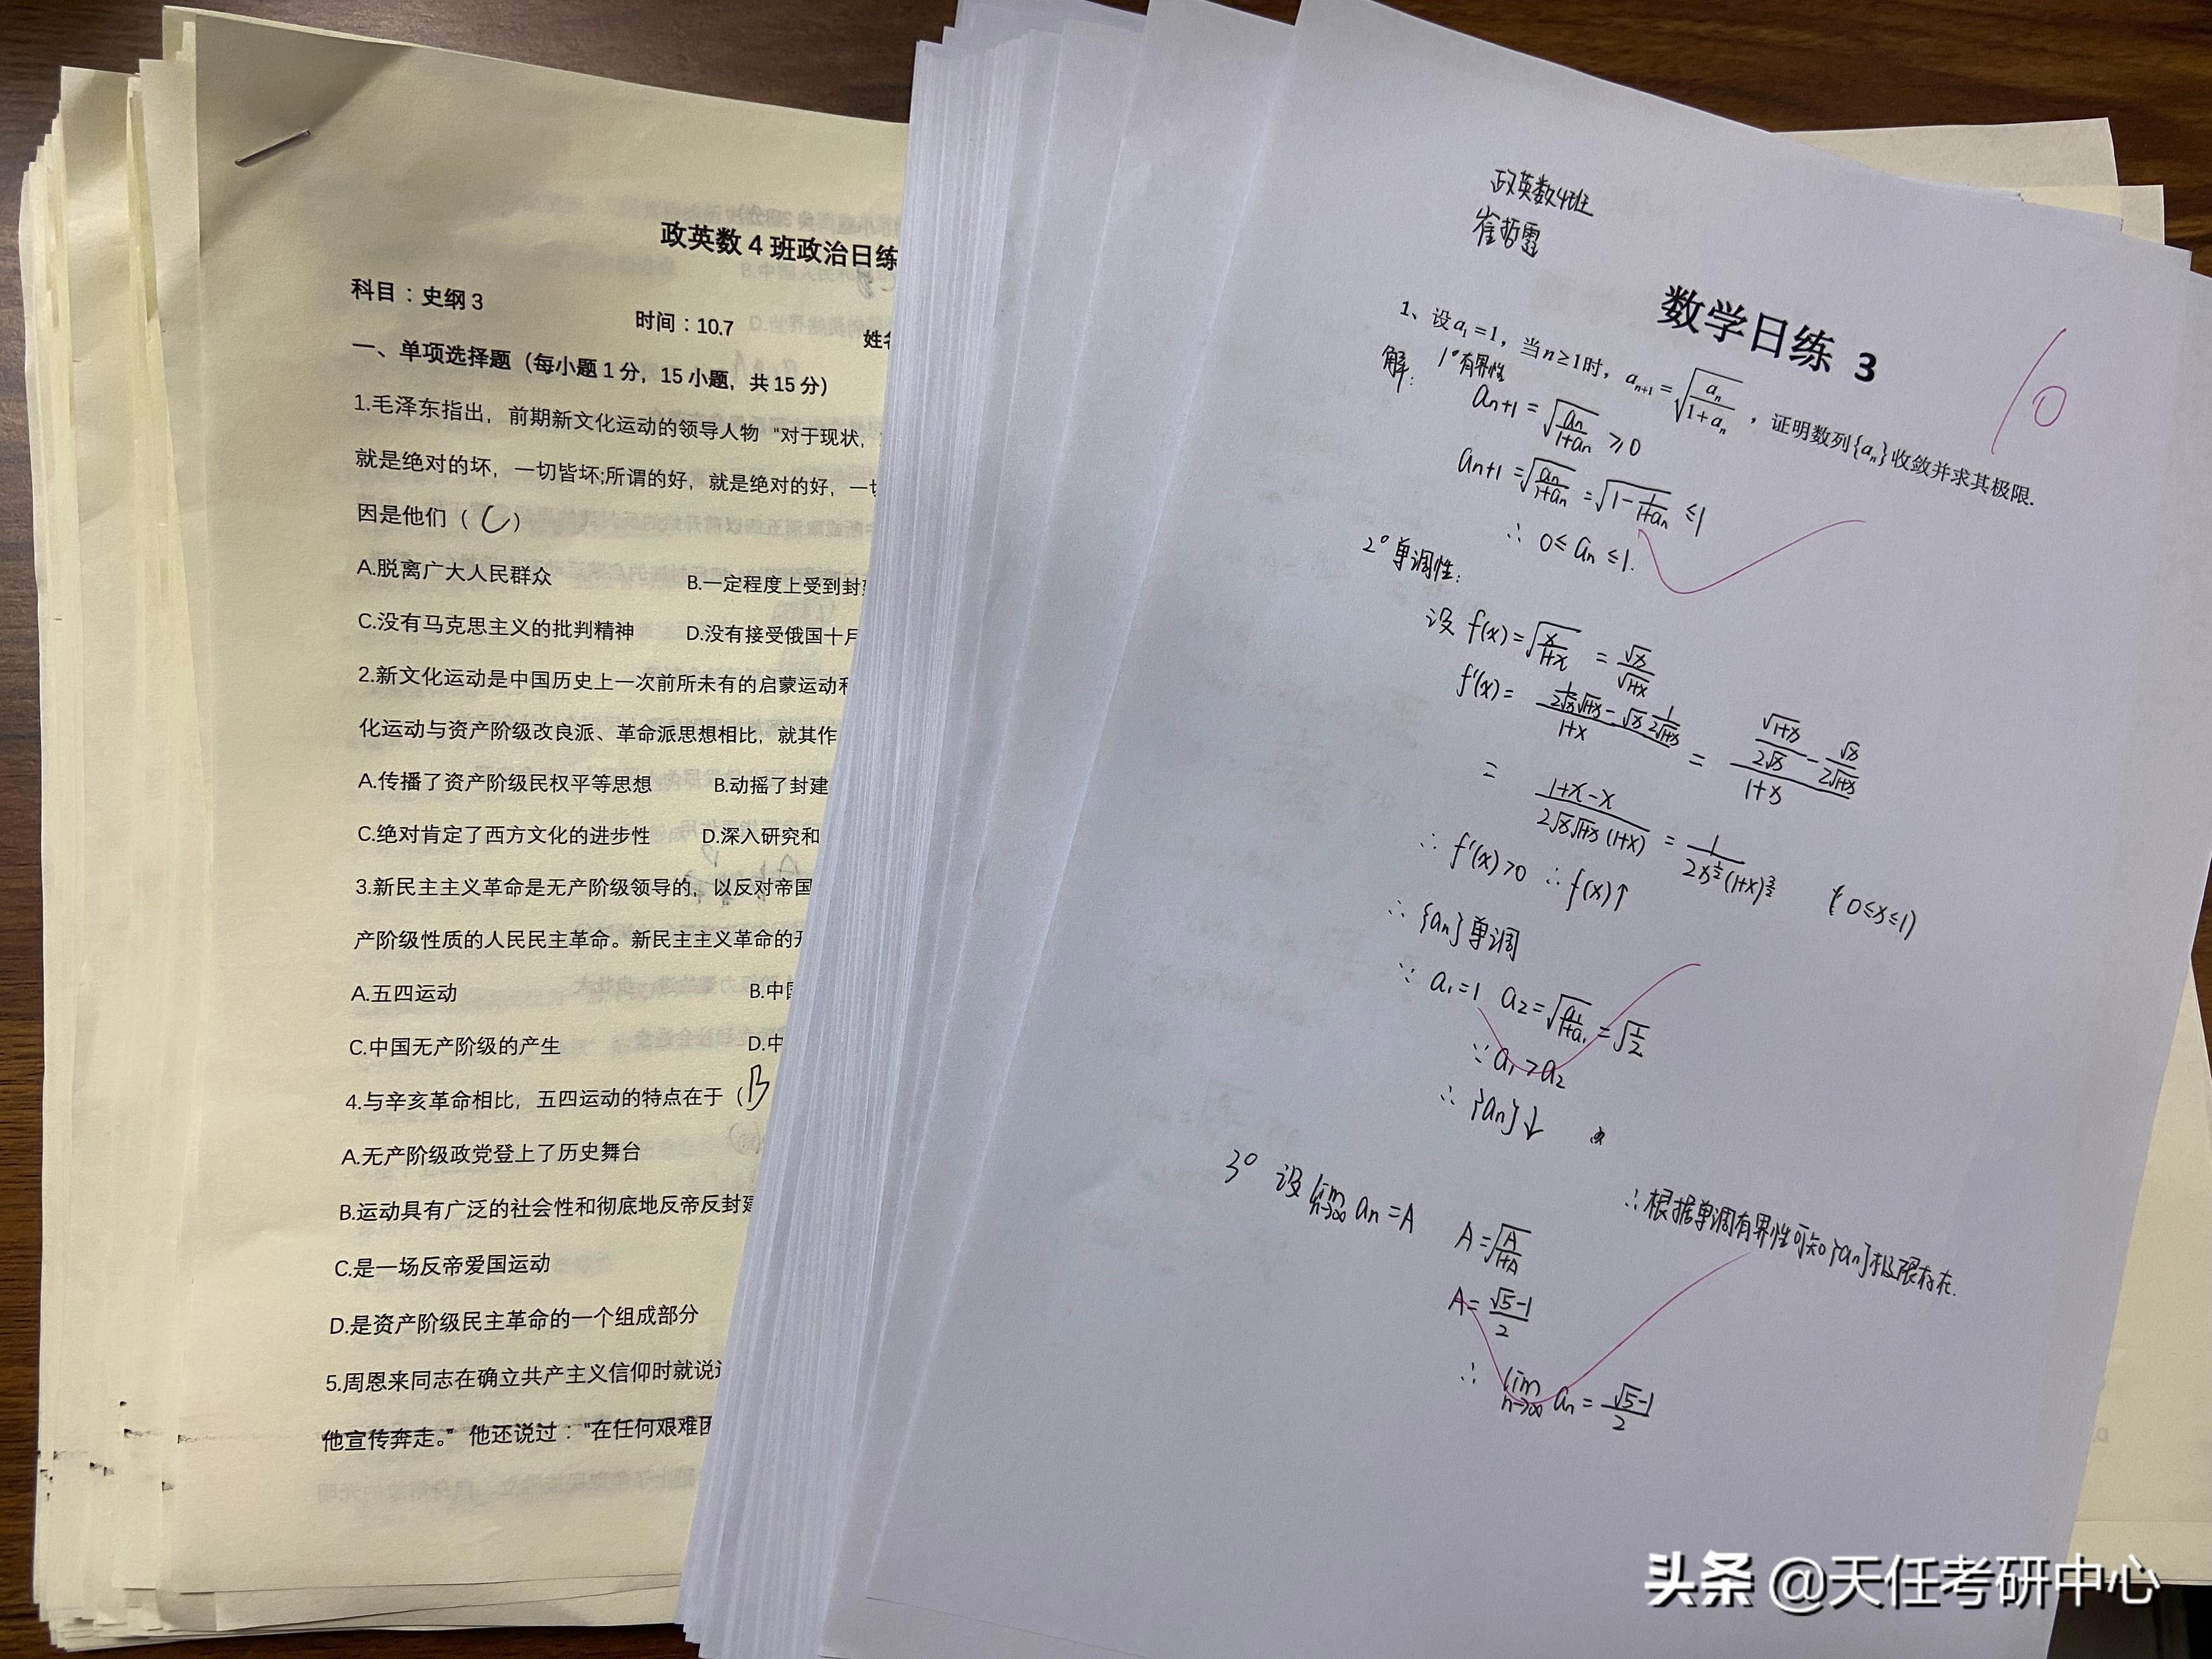 政英数4班政治日练
科目：史纲3
时间：10.7
一、单项选择题（每小题1分，15小题，共15分）
1.毛泽东指出，前期新文化运动的领导人物“对于现状，
就是绝对的坏，一切皆坏;所谓的好，就是绝对的好，一
因是他们（ C ）
A.脱离广大人民群众 B.一定程度上受到封
C.没有马克思主义的批判精神 D.没有接受俄国十月
2.新文化运动是中国历史上一次前所未有的启蒙运动和
化运动与资产阶级改良派、革命派思想相比，就其作
A.传播了资产阶级民权平等思想 B.动摇了封建
C.绝对肯定了西方文化的进步性 D.深入研究和
3.新民主主义革命是无产阶级领导的，以反对帝国
产阶级性质的人民民主革命。新民主主义革命的开
A.五四运动 B.中国
C.中国无产阶级的产生 D.中
4.与辛亥革命相比，五四运动的特点在于（B
A.无产阶级政党登上了历史舞台
B.运动具有广泛的社会性和彻底地反帝反封建
C.是一场反帝爱国运动
D.是资产阶级民主革命的一个组成部分
5.周恩来同志在确立共产主义信仰时就说过
他宣传奔走。” 他还说过：“在任何艰难困
政英数4班
崔哲露
数学日练 3
10
1、设a₁=1，当n≥1时，aₙ₊₁=√(aₙ/(1+aₙ))，证明数列{aₙ}收敛并求其极限.
解： 1°有界性
aₙ₊₁=√(aₙ/(1+aₙ)) ≥0
aₙ₊₁=√(aₙ/(1+aₙ)) =√(1-1/(1+aₙ)) ≤1
∴ 0≤aₙ≤1.
2°单调性:
设 f(x)=√(x/(1+x)) = √x/√(1+x)
f'(x)= (1/(2√x)√(1+x) - √x 1/(2√(1+x)))/(1+x) = (√(1+x)/(2√x) - √x/(2√(1+x)))/(1+x)
= (1+x-x)/(2√x√(1+x)(1+x)) = 1/(2x^(1/2)(1+x)^(3/2)) (0≤x≤1)
∴ f'(x)>0 ∴ f(x)↑
∴ {aₙ}单调
∵ a₁=1 a₂=√(a₁/(1+a₁)) =√(1/2)
∵ a₁>a₂
∴ {aₙ}↓
∴根据单调有界性可知{aₙ}极限存在.
3° 设 lim n→∞ aₙ=A
A=√(A/(1+A))
A=(√5-1)/2
∴ lim n→∞ aₙ=(√5-1)/2
头条 @天任考研中心